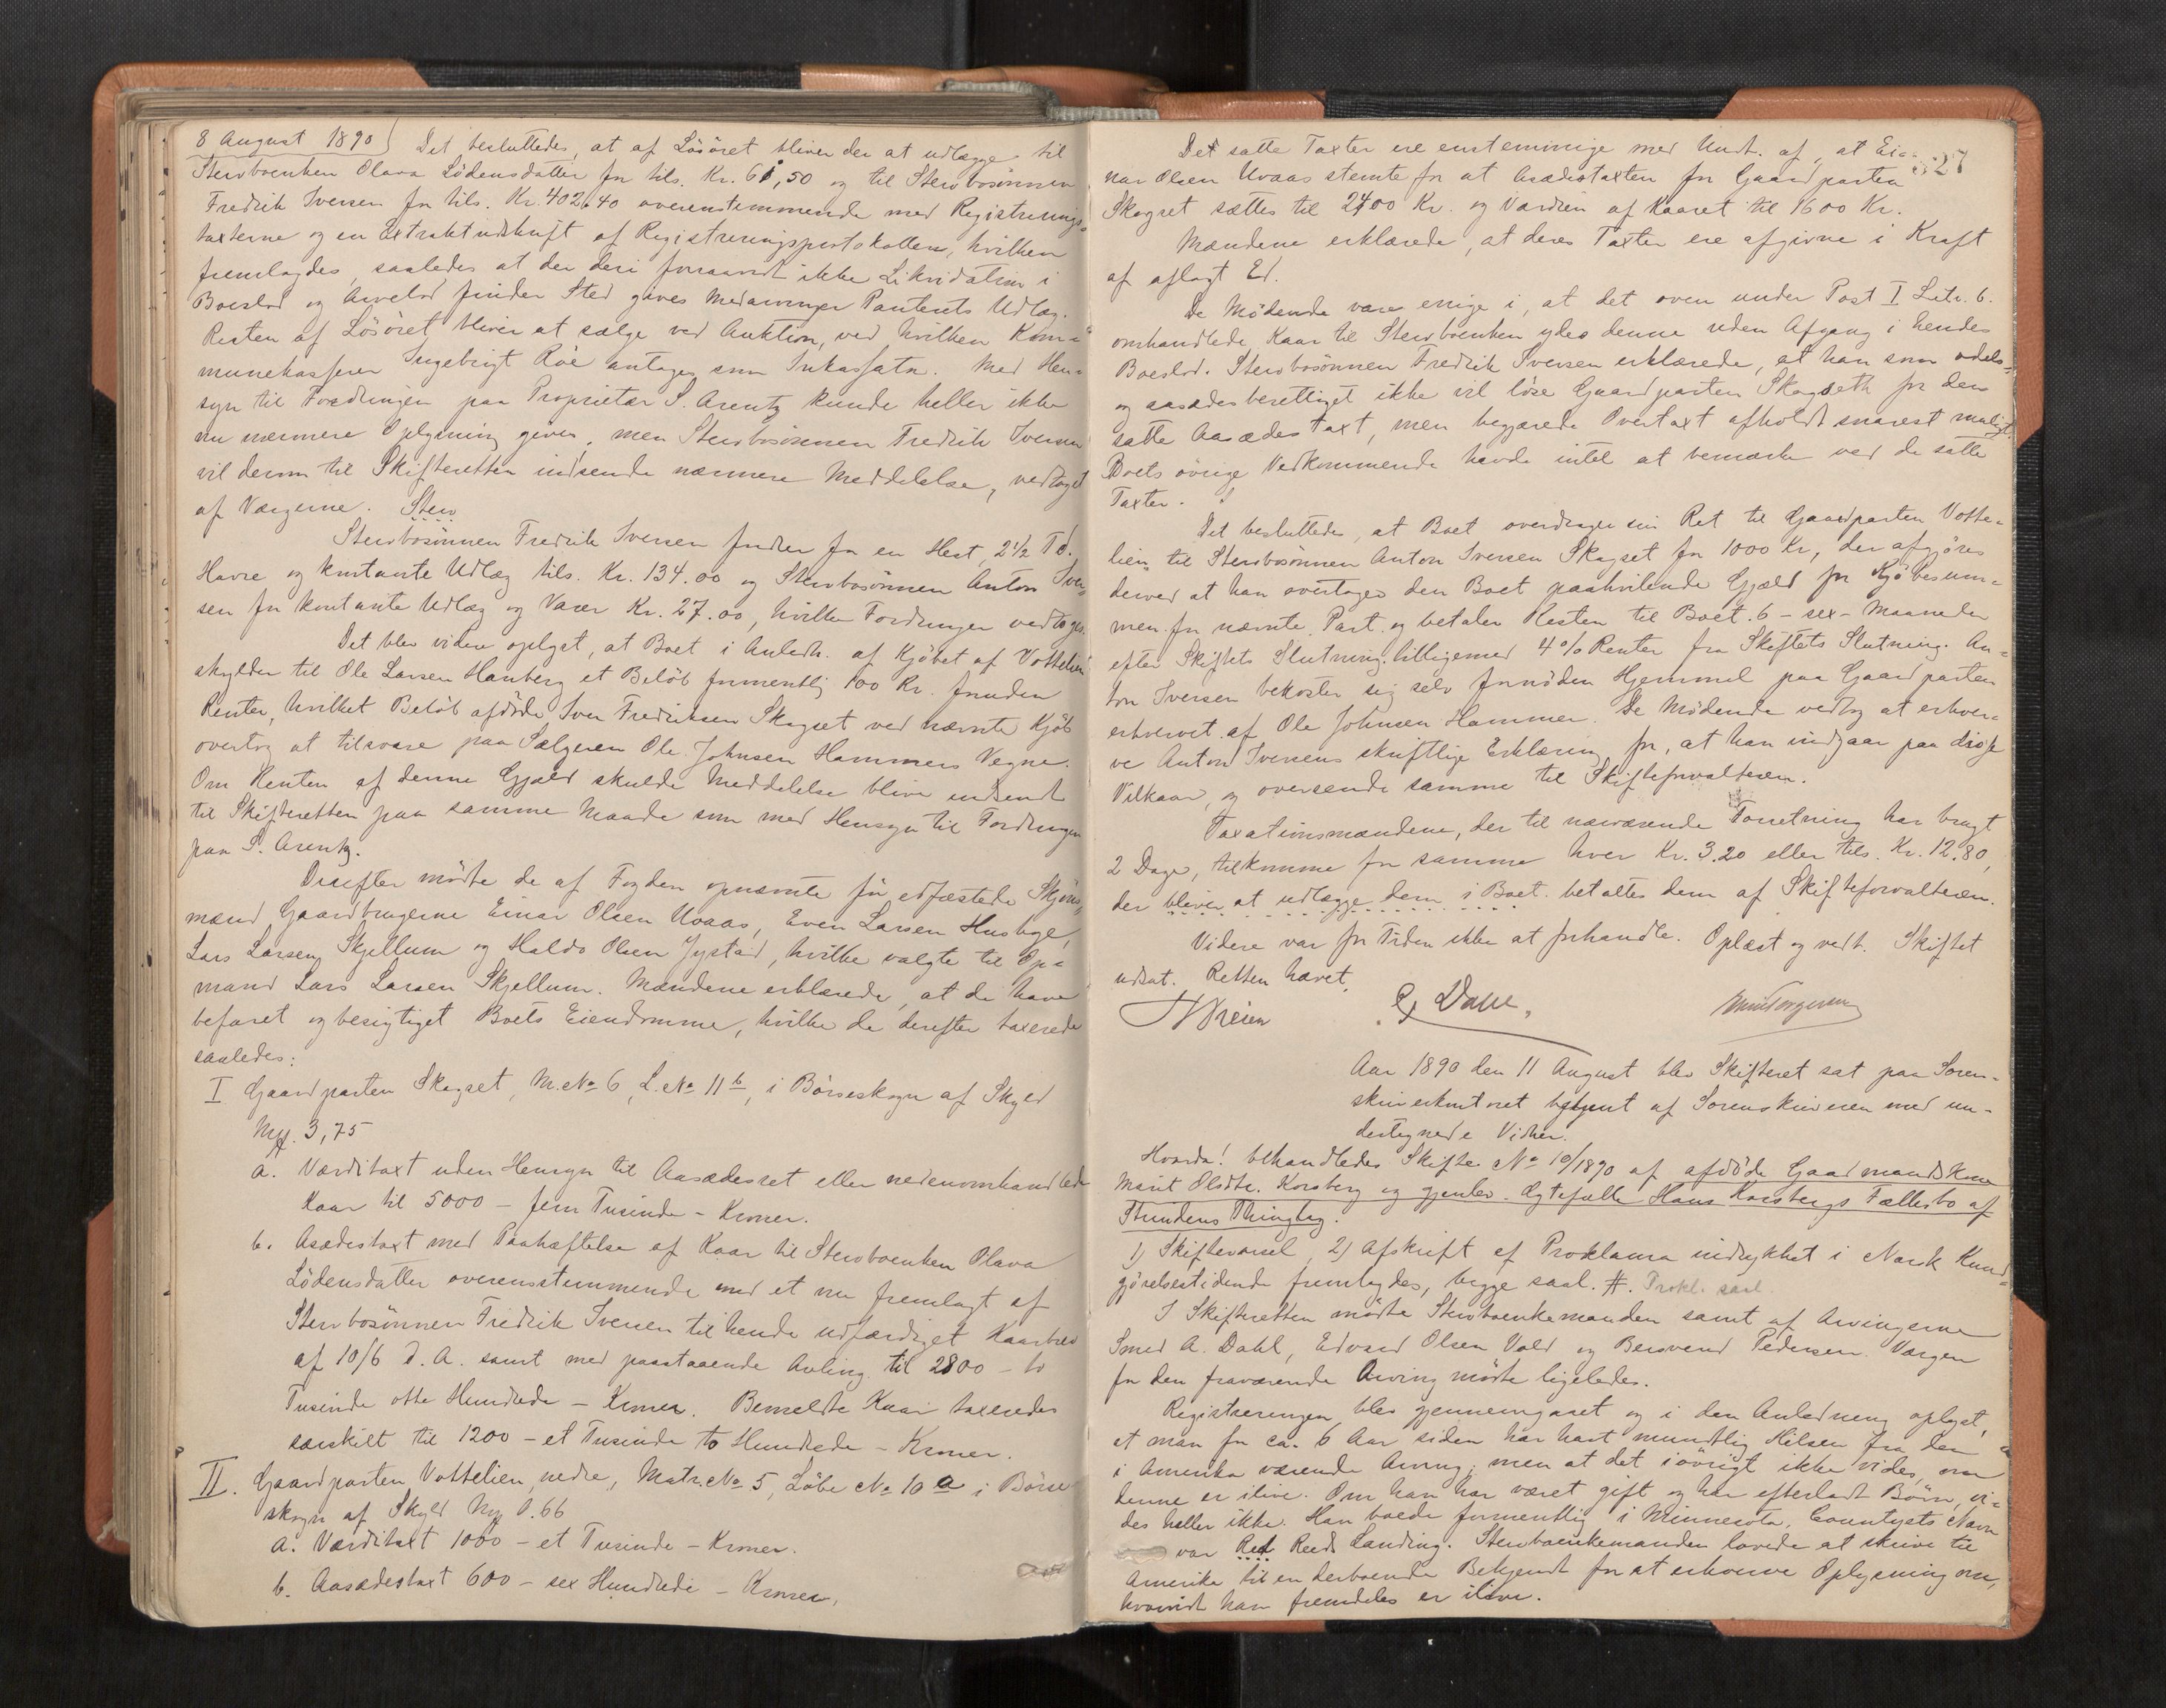 8 August 1890) Det besluttedes, at af Lösöret bliver der at udlægge til
Stervboenken Olava Lödensdatter for tils. Kr. 61,50 og til Stervbosönnen
Fredrik Iversen for tils. Kr. 402.40 overenstemmende med Registrerings-
taxterne og en Extraktudskrift af Registreringsprotokollen, hvilken
fremlagdes, saaledes at der deri forsaavidt ikke Likvidation i
Boeslod og Arvelod finder Sted gives Medarvinger Panterets Udlæg.
Resten af Lösöret bliver at sælge ved Auktion, ved hvilken Kom-
munekasserer Ingebrigt Röe antages som Inkassator. Med Hen-
syn til Fordringen paa Proprietær S. Arentz kunde heller ikke
nu nærmere Oplysning gives, men Stervbosönnen Fredrik Iversen
vil derom til Skifteretten indsende nærmere Meddelelse, vedtaget
af Værgerne. Sterv
Stervbosönnen Fredrik Iversen fordrer for en Hest, 2½ Td.
Havre og kontante Udlæg tils. Kr. 134.00 og Stervbosönnen Anton Iver-
sen for kontante Udlæg og Varer Kr. 27.00, hvilke Fordringer vedtoges.
Det blev videre oplyst, at Boet i Anledn. af Kjöbet af Vottelien
skylder til Ole Larsen Hanberg et Belöb formentlig 100 Kr. foruden
Renter, hvilket Belöb afdöde Iver Fredriksen Skogset ved nævnte Kjöb
overtog at tilsvare paa Sælgeren Ole Johnsen Hammers Vegne.
Om Renten af denne Gjæld skulde Meddelelse blive indsendt
til Skifteretten paa samme Maade som med Hensyn til Fordringen
paa S. Arentz.
Derefter mödte de af Fogden opnævnte för edfæstede Skjöns-
mænd Gaardbrugerne Einar Olsen Uvaas, Even Larsen Husbye,
Lars Larsen Skjellum og Haldo Olsen Jystad, hvilke valgte til Op-
mand Lars Larsen Skjellum. Mændene erklærede, at de have
befaret og besigtiget Boets Eiendomme, hvilke de derefter taxerede
saaledes:
I Gaardparten Skogset, M. No 6, L. No 11 b, i Börseskogn af Skyld
Mk. 3,75
a. Værditaxt uden Hensyn til Aasædesret eller nedenomhandlede
Kaar til 5000 - fem Tusinde - Kroner.
b. Asædestaxt med Paahæftelse af Kaar til Stervboenken Olava
Lödensdatter overensstemmende med et nu fremlagt af
Stervbosönnen Fredrik Iversen til hende udfærdiget Kaarbrev
af 10/6 d. A. samt med paastaaende Avling til 2800 - to
Tusinde otte Hundrede - Kroner. Bemeldte Kaar taxeredes
særskilt til 1200 - et Tusinde to Hundrede - Kroner.
II. Gaardparten Vottelien nedre, Matr. No 5, Löbe No 10 a i Börse
skogn af Skyld Mk 0.66
a. Værditaxt 1000 - et Tusinde - Kroner.
b. Aasædestaxt 600 - sex Hundrede - Kroner.
327
Det satte Taxter ere enstemmige med Undt. af, at Ei-
nar Olsen Uvaas stemte for at Asædestaxten for Gaardparten
Skogset sættes til 2400 Kr. og Værdien af Kaaret til 1600 Kr.
Mændene erklærede, at deres Taxter ere afgivne i Kraft
af aflagt Ed.
De Mödende vare enige i, at det oven under Post I Litr. b.
omhandlede Kaar til Stervboenken ydes denne uden Afgang i hendes
Boeslod. Stervbosönnen Fredrik Iversen erklærede, at han som odels-
og aasædesberettiget ikke vil löse Gaardparten Skogseth for den
satte Aasædestaxt, men begjærede Overtaxt afholdt snarest muligt.
Boets övrige Vedkommende havde intet at bemærke ved de satte
Taxter.
Det besluttedes, at Boet overdrager sin Ret til Gaardparten Votte-
lien til Stervbosönnen Anton Iversen Skogset for 1000 Kr, der afgjöres
derved at han overtager den Boet paahvilende Gjæld for Kjöbesum-
men for nævnte Part og betaler Resten til Boet 6 - sex - Maaneder
efter Skiftets Slutning tilligemed 4% Renter fra Skiftets Slutning. An-
ton Iversen bekoster sig selv fornöden Hjemmel paa Gaardparten
erhvervet af Ole Johnsen Hammer. De Mödende vedtog at erhver-
ve Anton Iversens skriftlige Erklæring for, at han indgaar paa disse
Vilkaar, og oversende samme til Skifteforvalteren.
Taxationsmændene, der til nærværende Forretning har brugt
2 Dage, tilkomme for samme hver Kr. 3.20 eller tils. Kr. 12.80,
der bliver at udlægge dem i Boet. betaltes dem af Skifteforvalteren.
Videre var for Tiden ikke at forhandle. Oplæst og vedt. Skiftet
udsat. Retten hævet.
E Dahl.
Aar 1890 den 11 August blev Skifteret sat paa Soren-
skriverkontoret betjent af Sorenskriveren med un-
dertegnede Vidner.
Hvorda! behandledes Skifte No 10/1890 af afdöde Gaardmandskone
Marit Olsdtr. Korsberg og gjenlev. Ægtefælle Hans Korsbergs Fællesbo af
Strindens Thinglag.
1) Skiftevarsel, 2) Afskrift af Proklama indrykket i Norsk Kund-
gjörelsestidende fremlagdes, begge saal. #. Prokl. saal.
I Skifteretten mödte Stervboenkemanden samt af Arvingerne
Smed A. Dahl, Edvard Olsen Vold og Bersvend Pedersen. Værgen
for den fraværende Arving mödte ligeledes.
Registreringen blev gjennemgaaet og i den Anledning oplyst,
at man for ca. 6 Aar siden har havt mundtlig Hilsen fra den
i Amerika værende Arving; men at det iövrigt ikke vides, om
denne er ilive. Om han har været gift og har efterladt Börn, vi-
des heller ikke. Han boede formentlig i Minnesota, Countyets Navn
var Red Reeds Landing. Stervboenkemanden lovede at skrive til
Amerika til en derboende Bekjendt for at erhverve Oplysning om,
hvorvidt han fremdeles er ilive.